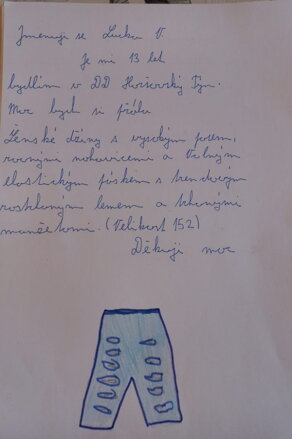 Jmenuji se Lucka V.
Je mi 13 let
bydlím v DD Horšovský Týn.
Moc bych si přála
Ženské džíny s vysokým pasem,
rovnými nohavicemi a volným
elastickým páskem s trendovým
rozšířeným lemem a trhanými
manžetami. (Velikost 152)
Děkuji moc